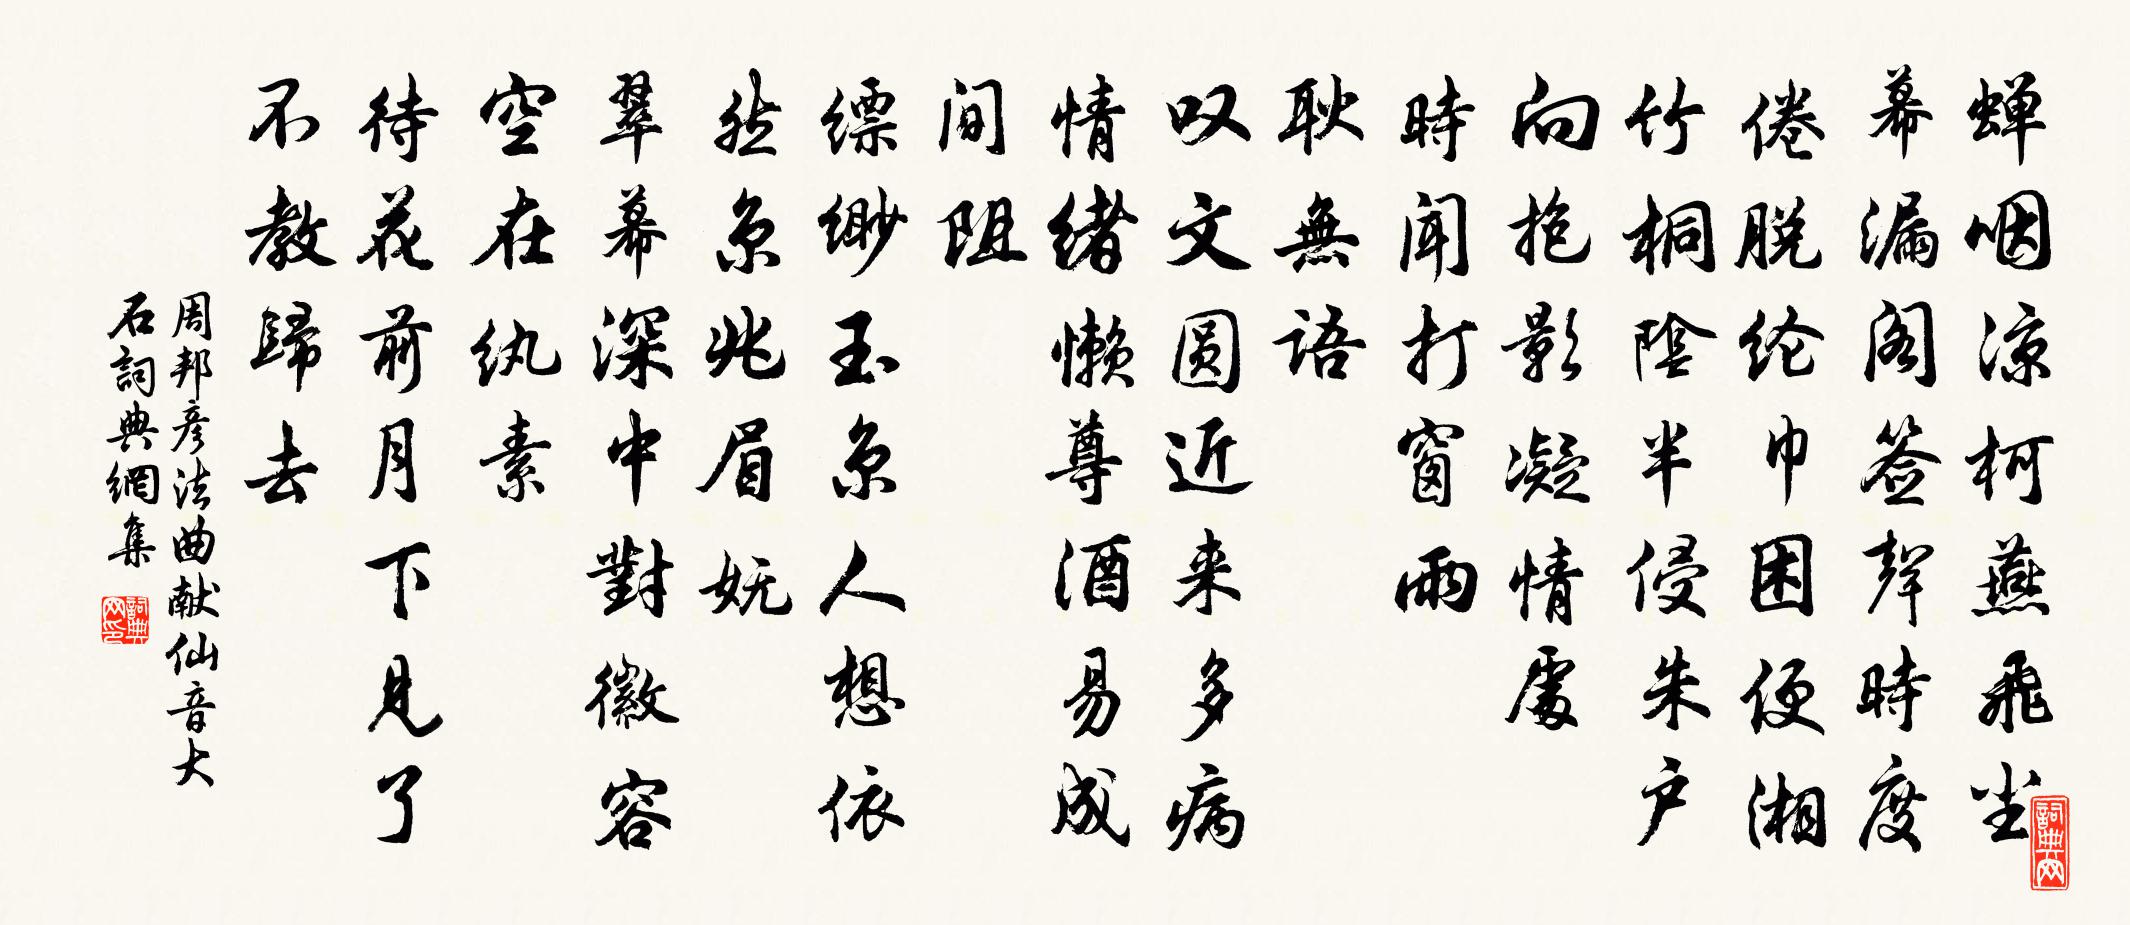 蝉咽凉柯燕飛尘
幕漏阁签聲時度
倦脱纶巾困便湘
竹桐陰半侵朱户
向抱影凝情處
時聞打窗雨
耿無語
叹文圆近来多病
情绪懒尊酒易成
间阻
缥缈玉京人想依
然京兆眉妩
翠幕深中對徽容
空在纨素
待花前月下見了
不教歸去
周邦彦法曲献仙音大
石詞典網集
詞典网印
詞典网